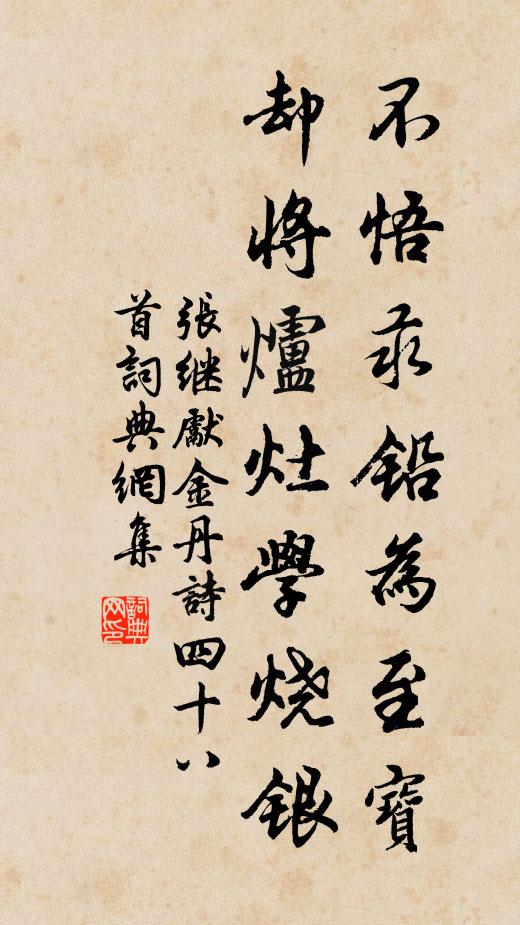 不悟汞鉛為至寶
却將爐灶學烧銀
張继獻金丹詩四十八
首詞典網集
詞典
网印